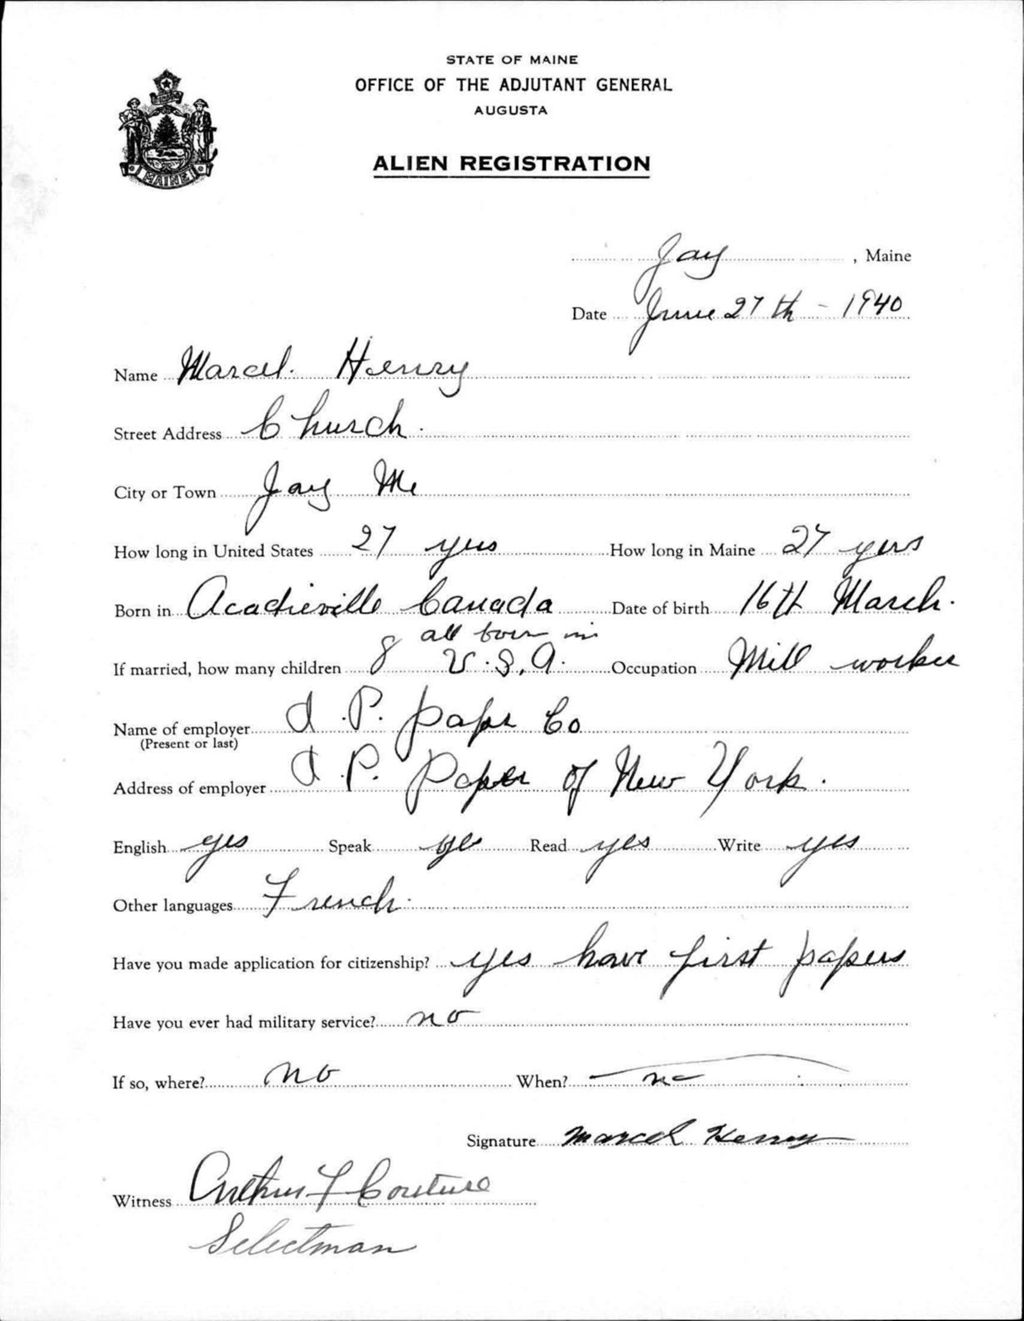 STATE OF MAINE
OFFICE OF THE ADJUTANT GENERAL
AUGUSTA
ALIEN REGISTRATION
MAINE
Jay, Maine
Date June 27th - 1940
Name Marcel. Henry
Street Address Church.
City or Town Jay Me
How long in United States 27 yrs How long in Maine 27 yers
Born in Acadieville Canada Date of birth 16th March.
all born in
If married, how many children 8 U.S.A. Occupation Mill worker
Name of employer I.P. pape Co
(Present or last)
Address of employer I.P. Paper of New York.
English yes Speak yes Read yes Write yes
Other languages French.
Have you made application for citizenship? yes have first papers
Have you ever had military service? no
If so, where? no When? no
Signature Marcel Henry
Witness Arthur F Couture
Selectman